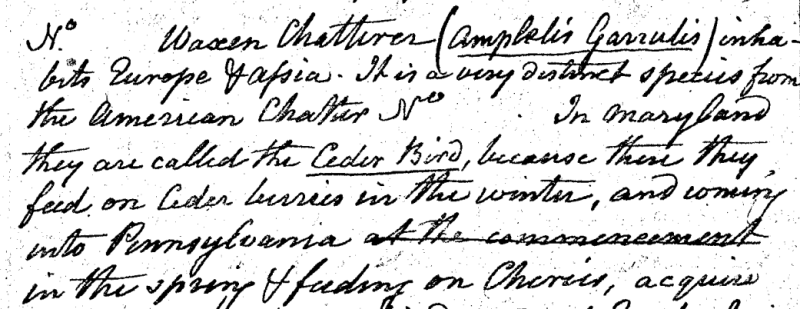 No. Waxen Chatterer (Ampelis Garrulis) inha-
bits Europe & Assia. It is a very distinct species from
the American Chatter No. In Maryland
they are called the Ceder Bird, because there they
feed on Ceder berries in the winter, and coming
into Pennsylvania at the commencement
in the spring & feeding on Cheries, acquire